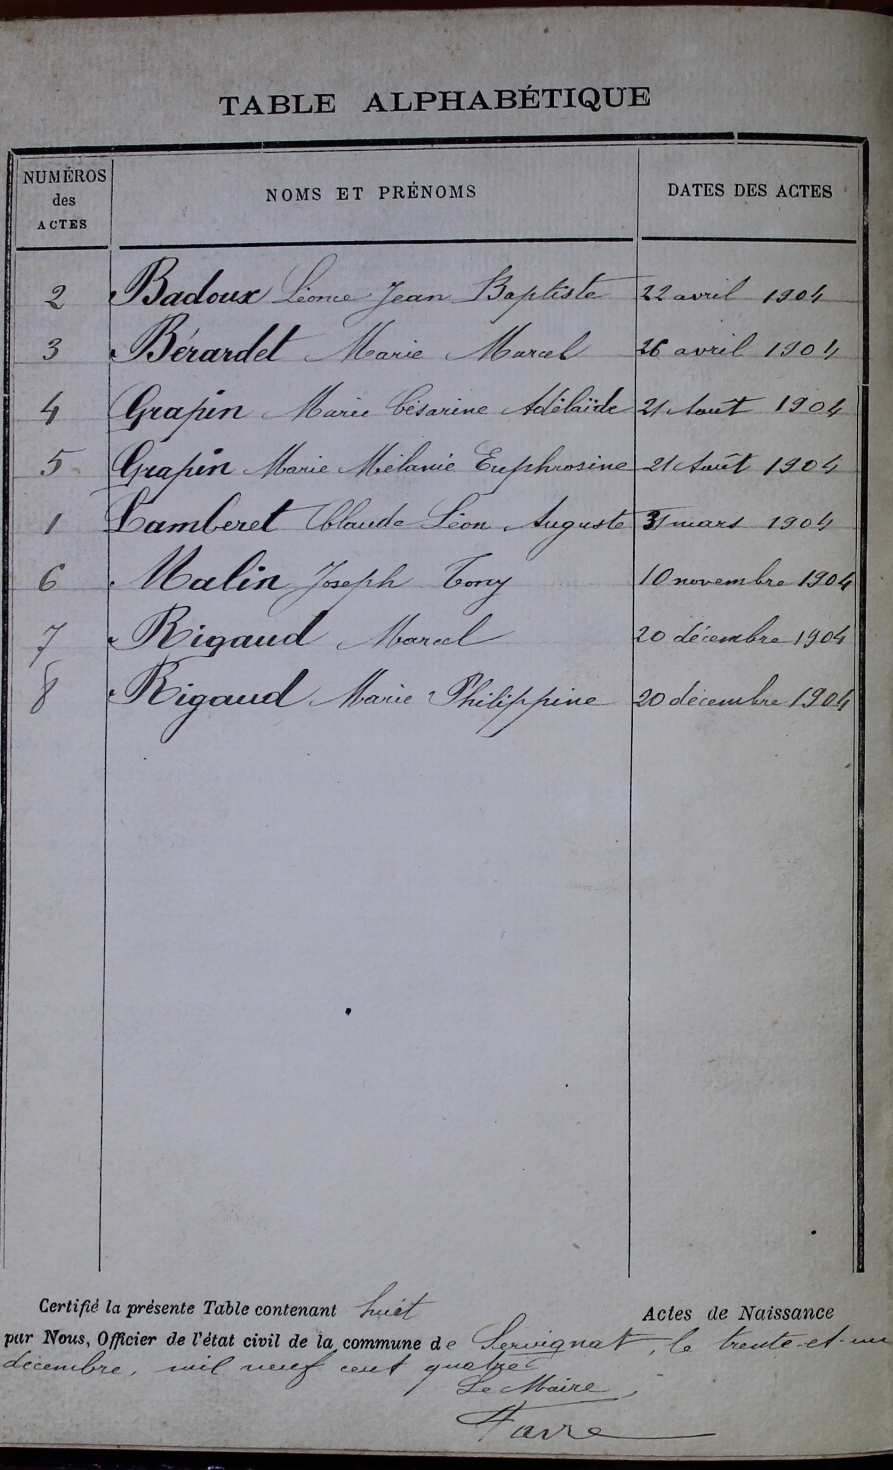 TABLE ALPHABÉTIQUE
NUMÉROS des ACTES NOMS ET PRÉNOMS DATES DES ACTES
2 Badoux Léonce Jean Baptiste 22 avril 1904
3 Bérardet Marie Marcel 26 avril 1904
4 Grapin Marie Césarine Adélaïde 21 Août 1904
5 Grapin Marie Mélanie Euphrosine 21 Août 1904
1 Lamberet Claude Léon Auguste 31 mars 1904
6 Malin Joseph Tony 10 novembre 1904
7 Rigaud Marcel 20 décembre 1904
8 Rigaud Marie Philippine 20 décembre 1904
Certifié la présente Table contenant huit Actes de Naissance
par Nous, Officier de l'état civil de la commune de Servignat, le trente-et-un
décembre, mil neuf cent quatre
Le Maire
Favre